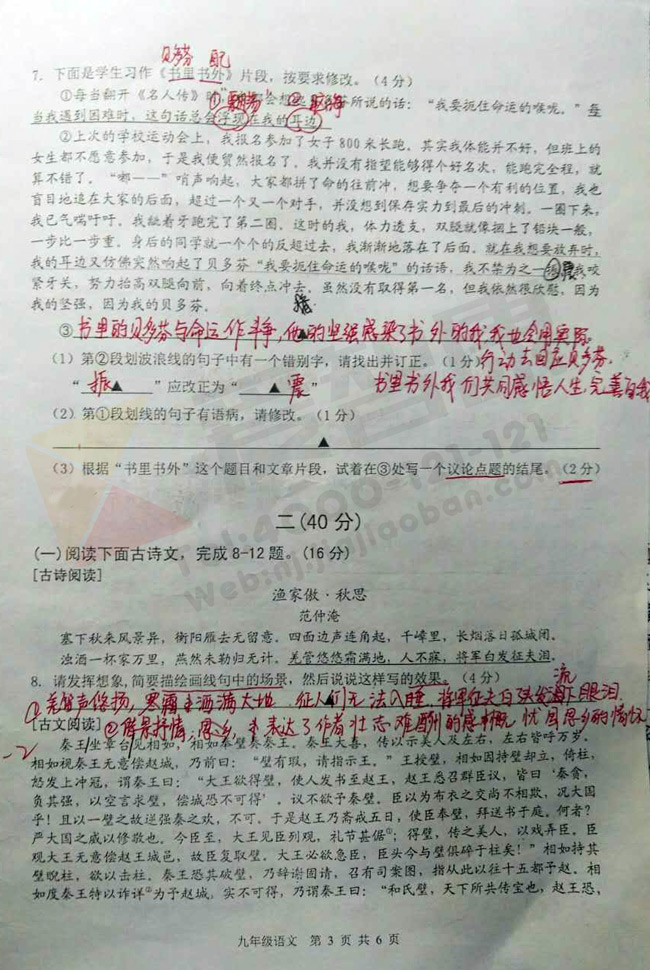 贝多芬 配
7. 下面是学生习作《书里书外》片段，按要求修改。（4分）
①每当翻开《名人传》时 会想起 所说的话：“我要扼住命运的喉咙。”每
当我遇到困难时，这句话总会浮现在我的耳边
②上次的学校运动会上，我报名参加了女子800米长跑。其实我体能并不好，但班上的
女生都不愿意参加，于是我便贸然报名了。我并没有指望能够得个好名次，能跑完全程，就
算不错了。“嘟——”哨声响起，大家都拼了命的往前冲，想要争夺一个有利的位置，我也
盲目地追在大家的后面，超过一个又一个对手，并没想到保存实力到最后的冲刺。一圈下来，
我已气喘吁吁，我龇着牙跑完了第二圈。这时的我，体力透支，双腿就像捆上了铅块一般，
一步比一步重。身后的同学就一个个的反超过去，我渐渐地落在了后面。就在我想要放弃时，
我的耳边又仿佛突然响起了贝多芬“我要扼住命运的喉咙”的话语，我不禁为之一 我咬
紧牙关，努力抬高双腿向前，向着终点冲去，虽然没有取得第一名，但我依然很欣慰，因为
我的坚强，因为我的贝多芬。
③书里的贝多芬与命运作斗争，他的坚强感染了书外的我，我也会用实际
行动去回应贝多芬。
书里书外我们共同感悟人生，完善自我
（1）第②段划波浪线的句子中有一个错别字，请找出并订正。（1分）
“振▲”应改正为“▲震”
（2）第①段划线的句子有语病，请修改。（1分）
▲
（3）根据“书里书外”这个题目和文章片段，试着在③处写一个议论点题的结尾。（2分）
二(40分)
(一)阅读下面古诗文，完成8-12题。(16分)
[古诗阅读]
渔家傲·秋思
范仲淹
塞下秋来风景异，衡阳雁去无留意。四面边声连角起，千嶂里，长烟落日孤城闭。
浊酒一杯家万里，燕然未勒归无计。羌管悠悠霜满地，人不寐，将军白发征夫泪。
8. 请发挥想象，简要描绘画线句中的场景，然后说说这样写的效果。（4分）
①羌管声悠扬，寒霜洒满大地 征人们无法入睡，将军征夫白头发流下眼泪
[古文阅读]
②借景抒情，思乡，表达了作者壮志难酬的感慨 忧国思乡的情怀
-2
秦王坐章台见相如，相如奉璧奏秦王。秦王大喜，传以示美人及左右，左右皆呼万岁。
相如视秦王无意偿赵城，乃前曰：“璧有瑕，请指示王。”王授璧，相如因持璧却立，倚柱，
怒发上冲冠，谓秦王曰：“大王欲得璧，使人发书至赵王，赵王悉召群臣议，皆曰‘秦贪，
负其强，以空言求璧，偿城恐不可得’。议不欲予秦璧。臣以为布衣之交尚不相欺，况大国
乎！且以一璧之故逆强秦之欢，不可。于是赵王乃斋戒五日，使臣奉璧，拜送书于庭。何者？
严大国之威以修敬也。今臣至，大王见臣列观，礼节甚倨①；得璧，传之美人，以戏弄臣。臣
观大王无意偿赵王城邑，故臣复取璧。大王必欲急臣，臣头今与璧俱碎于柱矣！”相如持其
璧睨柱，欲以击柱。秦王恐其破璧，乃辞谢固请，召有司案图，指从此以往十五都予赵。相
如度秦王特以诈详②为予赵城，实不可得，乃谓秦王曰：“和氏璧，天下所共传宝也，赵王恐，
九年级语文 第 3 页 共 6 页